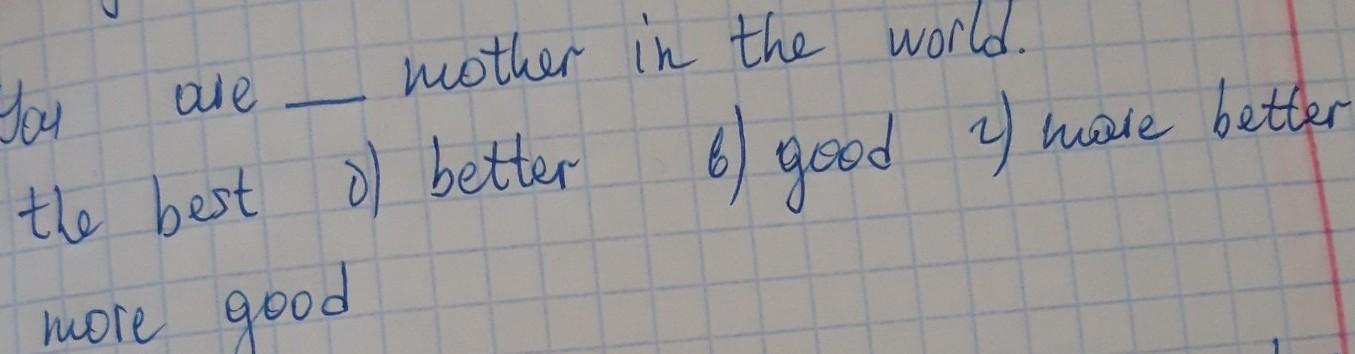 You are __ mother in the world.
the best б) better в) good г) more better
more good